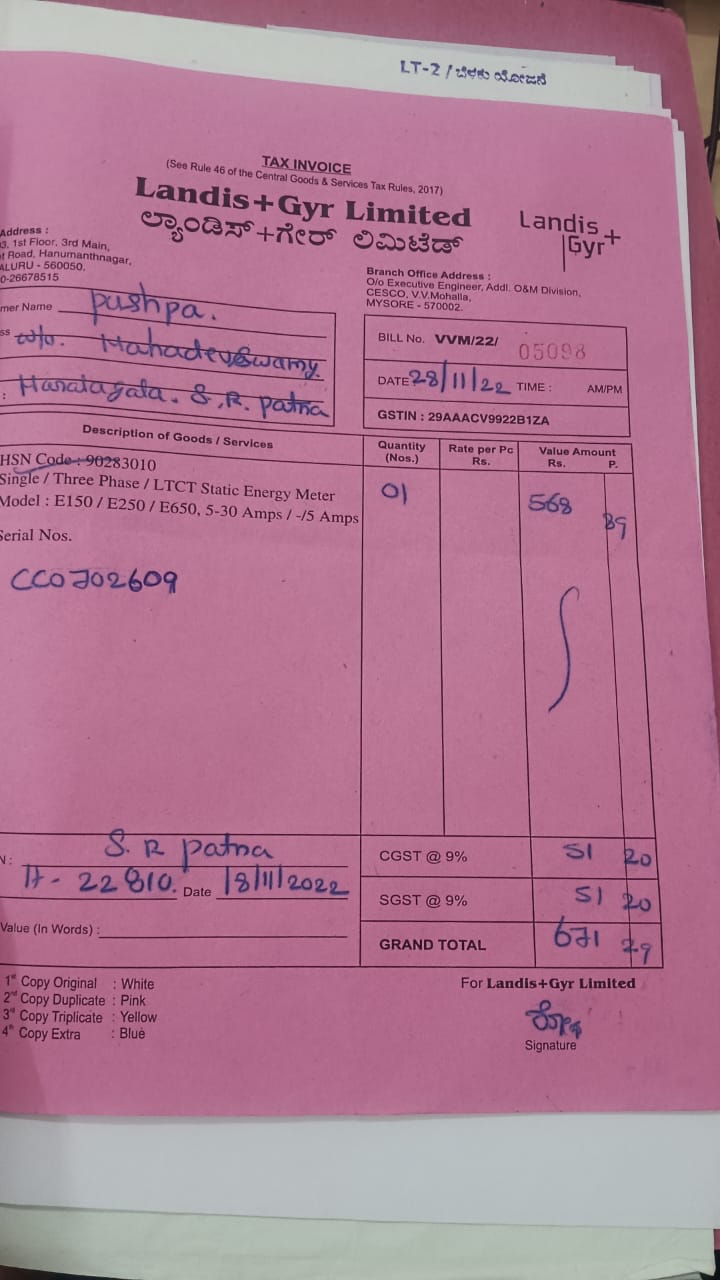 LT-2 / ಬೆಳಕು ಯೋಜನೆ
TAX INVOICE
(See Rule 46 of the Central Goods & Services Tax Rules, 2017)
Landis+Gyr Limited
ಲ್ಯಾಂಡಿಸ್+ಗೇರ್ ಲಿಮಿಟೆಡ್
Landis+
Gyr
Address :
3, 1st Floor, 3rd Main,
Road, Hanumanthnagar,
ALURU - 560050.
0-26678515
Branch Office Address :
O/o Executive Engineer, Addl. O&M Division,
CESCO, V.V.Mohalla,
MYSORE - 570002.
mer Name pushpa.
ss w/o. Mahadevswamy.
: Haralagala. S.R. patna
BILL No. VVM/22/ 05098
DATE 28/11/22 TIME : AM/PM
GSTIN : 29AAACV9922B1ZA
Description of Goods / Services Quantity (Nos.) Rate per Pc Rs. Value Amount Rs. P.
HSN Code : 90283010
Single / Three Phase / LTCT Static Energy Meter 01 568 89
Model : E150 / E250 / E650, 5-30 Amps / -/5 Amps
Serial Nos.
CC0702609
N : S. R patna
CGST @ 9% 51 20
22810. Date 18/11/2022
SGST @ 9% 51 20
Value (In Words) :
GRAND TOTAL 671 29
1st Copy Original : White
2nd Copy Duplicate : Pink
3rd Copy Triplicate : Yellow
4th Copy Extra : Blue
For Landis+Gyr Limited
Signature